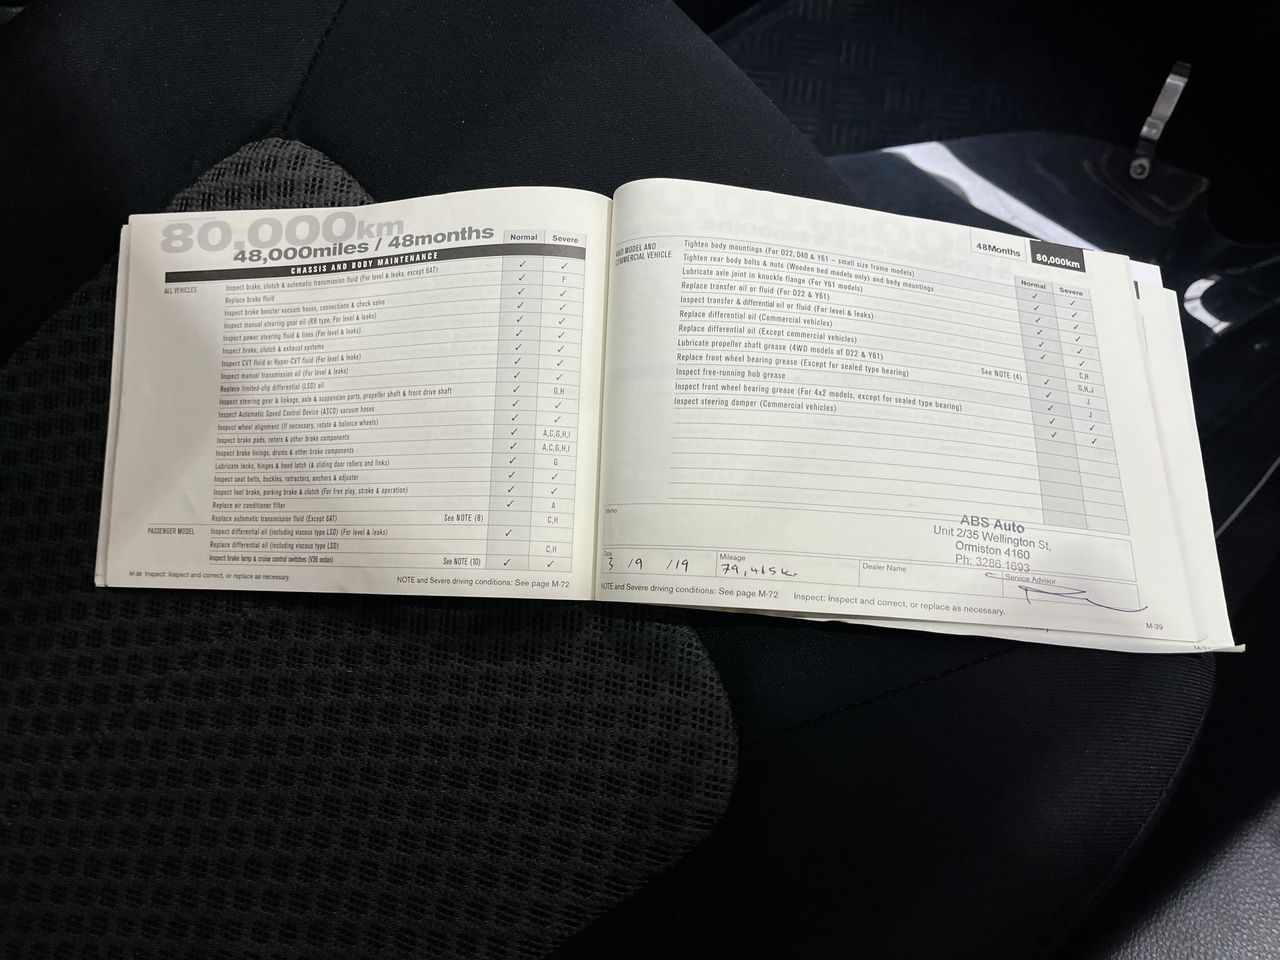 80,000km
48,000miles / 48months
Normal Severe
CHASSIS AND BODY MAINTENANCE
ALL VEHICLES
Inspect brake, clutch & automatic transmission fluid (For level & leaks, except 6AT) ✓ ✓
Replace brake fluid ✓ F
Inspect brake booster vacuum hoses, connections & check valve ✓ ✓
Inspect manual steering gear oil (RB type, For level & leaks) ✓ ✓
Inspect power steering fluid & lines (For level & leaks) ✓ ✓
Inspect brake, clutch & exhaust systems ✓ ✓
Inspect CVT fluid or Hyper-CVT fluid (For level & leaks) ✓ ✓
Inspect manual transmission oil (For level & leaks) ✓ ✓
Replace limited-slip differential (LSD) oil ✓ ✓
Inspect steering gear & linkage, axle & suspension parts, propeller shaft & front drive shaft ✓ G,H
Inspect Automatic Speed Control Device (ASCD) vacuum hoses ✓ ✓
Inspect wheel alignment (If necessary, rotate & balance wheels) ✓ ✓
Inspect brake pads, rotors & other brake components ✓ A,C,G,H,I
Inspect brake linings, drums & other brake components ✓ A,C,G,H,I
Lubricate locks, hinges & hood latch (& sliding door rollers and links) ✓ G
Inspect seat belts, buckles, retractors, anchors & adjuster ✓ ✓
Inspect foot brake, parking brake & clutch (For free play, stroke & operation) ✓ ✓
Replace air conditioner filter ✓ A
Replace automatic transmission fluid (Except 6AT) See NOTE (8) C,H
PASSENGER MODEL
Inspect differential oil (including viscous type LSD) (For level & leaks) ✓
Replace differential oil (including viscous type LSD) C,H
Inspect brake lamp & cruise control switches (V36 sedan) See NOTE (10) ✓ ✓
M-38 Inspect: Inspect and correct, or replace as necessary.
NOTE and Severe driving conditions: See page M-72
48Months 80,000km
Normal Severe
4WD MODEL AND
COMMERCIAL VEHICLE
Tighten body mountings (For D22, D40 & Y61 – small size frame models) ✓ ✓
Tighten rear body bolts & nuts (Wooden bed models only) and body mountings ✓ ✓
Lubricate axle joint in knuckle flange (For Y61 models) ✓ ✓
Replace transfer oil or fluid (For D22 & Y61) ✓ ✓
Inspect transfer & differential oil or fluid (For level & leaks) ✓ ✓
Replace differential oil (Commercial vehicles) C,H
Replace differential oil (Except commercial vehicles) See NOTE (4) ✓ G,H,J
Lubricate propeller shaft grease (4WD models of D22 & Y61) ✓ J
Replace front wheel bearing grease (Except for sealed type bearing) ✓ J
Inspect free-running hub grease ✓ ✓
Inspect front wheel bearing grease (For 4x2 models, except for sealed type bearing) ✓ ✓
Inspect steering damper (Commercial vehicles)
Memo
ABS Auto
Unit 2/35 Wellington St,
Ormiston 4160
Ph: 3286 1693
Date 3 /9 /19 Mileage 79,465k Dealer Name Service Advisor
NOTE and Severe driving conditions: See page M-72 Inspect: Inspect and correct, or replace as necessary.
M-39
M-71